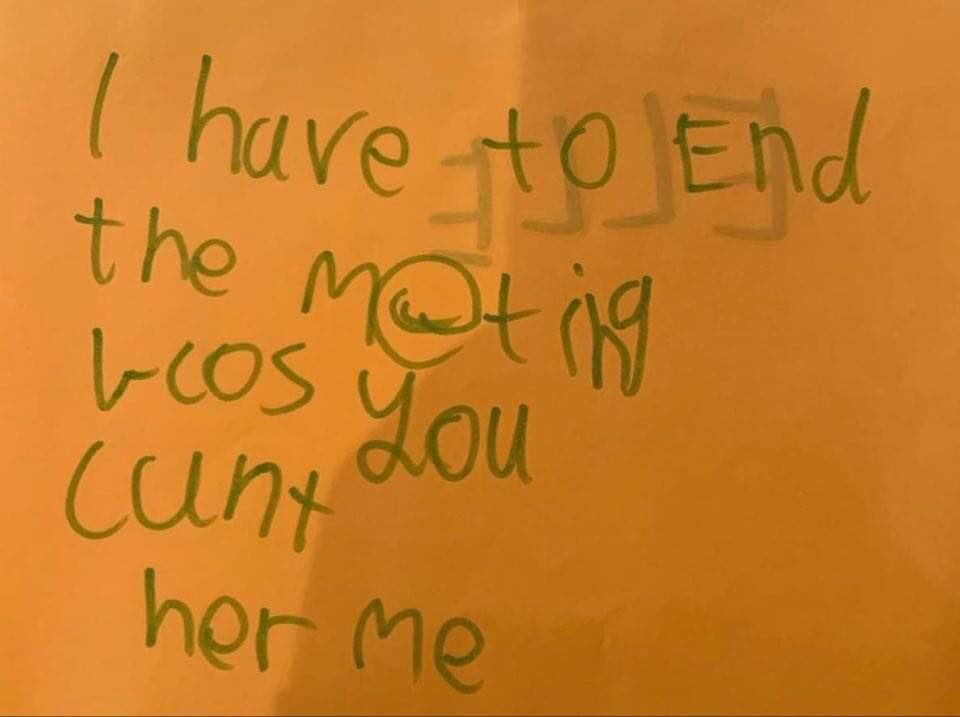 I have to End
the meting
bcos you
cunt
her me